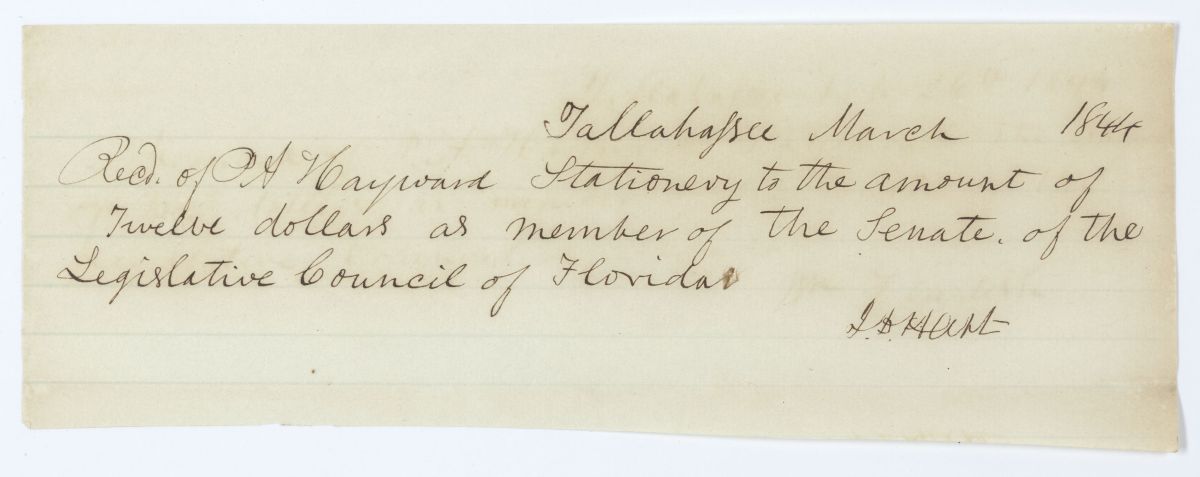 Tallahassee March 1844
Recd. of P A Hayward Stationery to the amount of
Twelve dollars as member of the Senate. of the
Legislative Council of Florida
I. D. Hart